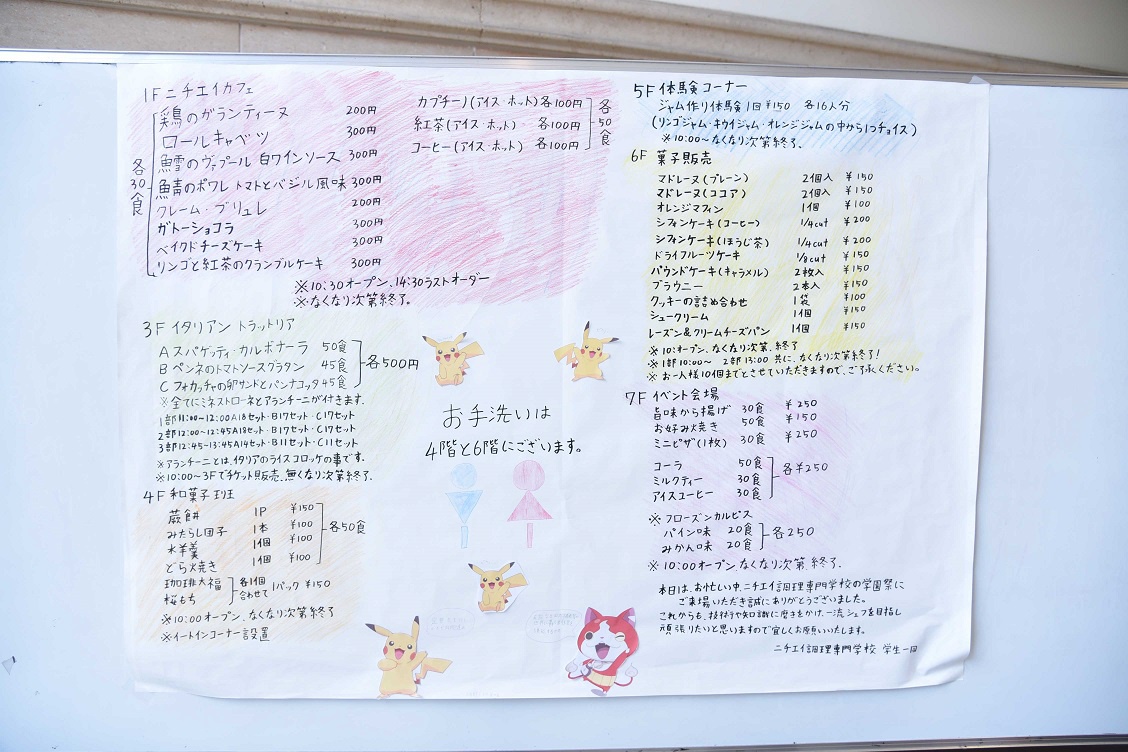 1F ニチエイカフェ
鶏のガランティーヌ 200円
ロールキャベツ 300円
鱈のヴァプール 白ワインソース 300円
鯖のポワレ トマトとバジル風味 300円
クレーム・ブリュレ 200円
ガトーショコラ 300円
ベイクドチーズケーキ 300円
リンゴと紅茶のクランブルケーキ 300円
各30食
カプチーノ(アイス・ホット) 各100円
紅茶(アイス・ホット)・ 各100円
コーヒー(アイス・ホット) 各100円
各50食
※10:30オープン、14:30ラストオーダー
※なくなり次第終了。
3F イタリアン トラットリア
A スパゲッティ・カルボナーラ 50食
B ペンネのトマトソースグラタン 45食
C フォカッチャの卵サンドとパンナコッタ 45食
各500円
※全てにミネストローネとアランチーニが付きます.
1部 11:00~12:00 A18セット・B17セット・C17セット
2部 12:00~12:45 A18セット・B17セット・C17セット
3部 12:45~13:45 A14セット・B11セット・C11セット
※アランチーニとは、イタリアのライスコロッケの事です.
※10:00~3Fでチケット販売、無くなり次第終了.
4F 和菓子 班
蕨餅 1P ¥150
みたらし団子 1本 ¥100
水羊羹 1個 ¥100
どら焼き 1個 ¥100
各50食
珈琲大福
桜もち
各1個合わせて 1パック ¥150
※10:00オープン、なくなり次第終了
※イートインコーナー設置
お手洗いは
4階と6階にございます。
5F 体験コーナー
ジャム作り体験 1回¥150 各16人分
(リンゴジャム・キウイジャム・オレンジジャムの中から1つチョイス)
※10:00~なくなり次第終了、
6F 菓子販売
マドレーヌ(プレーン) 2個入 ¥150
マドレーヌ(ココア) 2個入 ¥150
オレンジマフィン 1個 ¥100
シフォンケーキ(コーヒー) 1/4cut ¥200
シフォンケーキ(ほうじ茶) 1/4cut ¥200
ドライフルーツケーキ 1/8cut ¥150
パウンドケーキ(キャラメル) 2枚入 ¥150
ブラウニー 2本入 ¥150
クッキーの詰め合わせ 1袋 ¥100
シュークリーム 1個 ¥150
レーズン&クリームチーズパン 1個 ¥150
※10:オープン、なくなり次第、終了
※1部10:00~ 2部13:00 共に、なくなり次第終了!
※お一人様10個までとさせていただきますので、ご了承ください。
7F イベント会場
旨味から揚げ 30食 ¥250
お好み焼き 50食 ¥150
ミニピザ(1枚) 30食 ¥250
コーラ 50食
ミルクティー 30食
アイスコーヒー 30食
各¥250
※フローズンカルピス
パイン味 20食
みかん味 20食
各250
※10:00オープン なくなり次第、終了.
本日は、お忙しい中、ニチエイ調理専門学校の学園祭に
ご来場いただき誠にありがとうございました。
これからも、技術や知識に磨きをかけ、一流シェフを目指し
頑張りたいと思いますので宜しくお願いいたします。
ニチエイ調理専門学校 学生一同